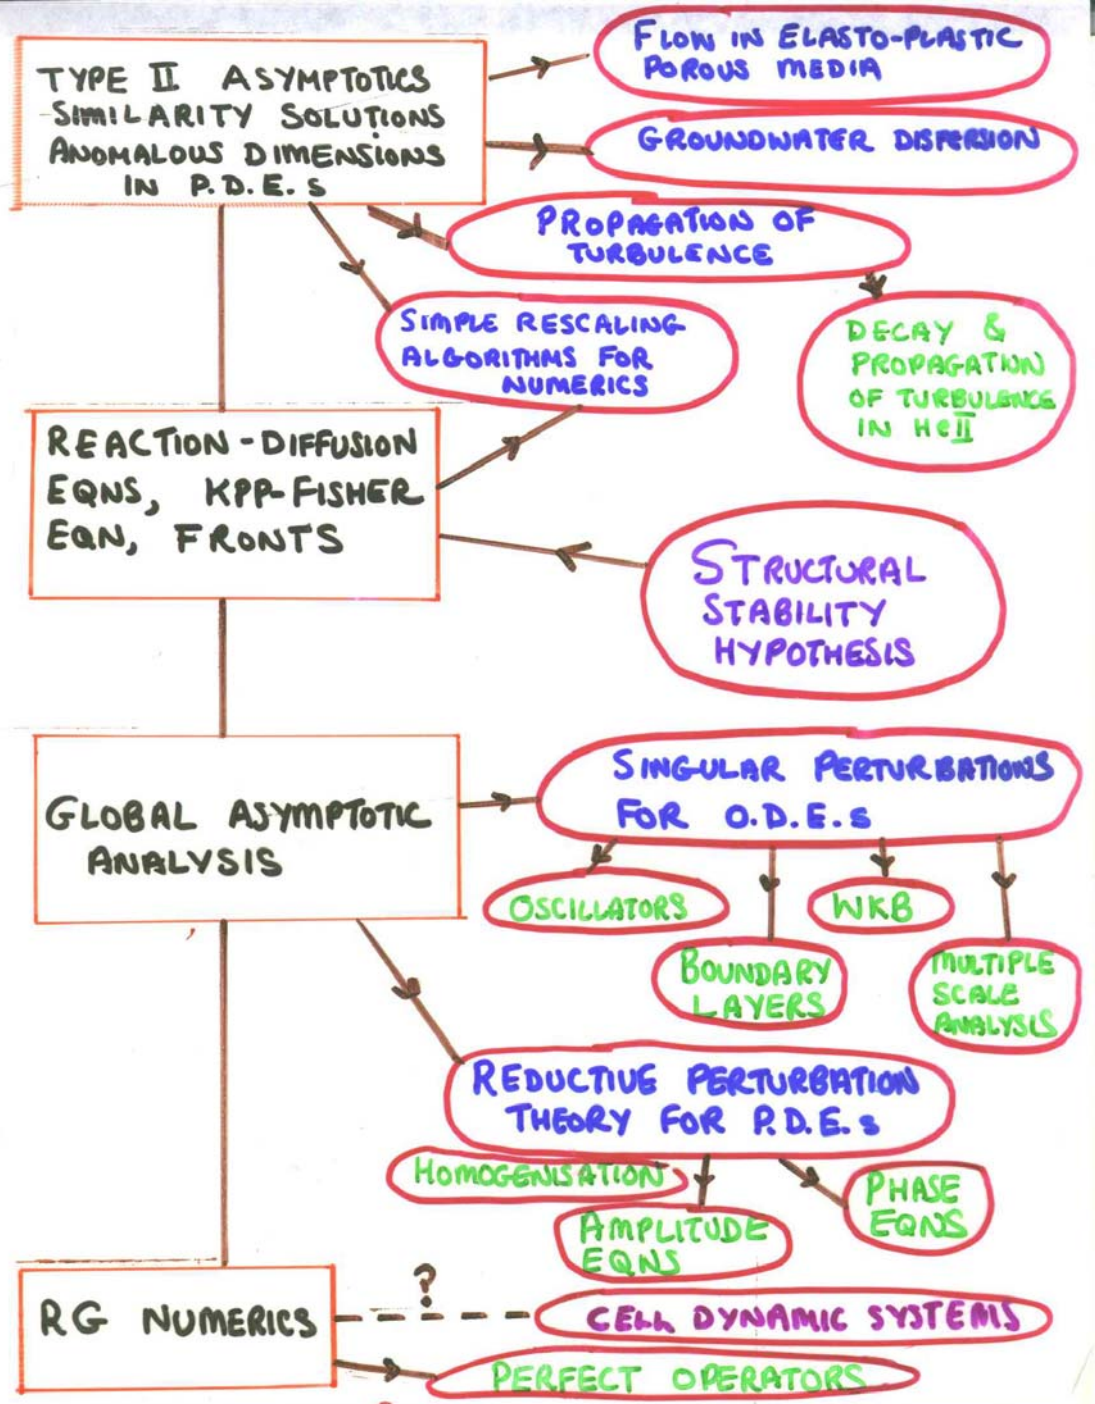 TYPE II ASYMPTOTICS
SIMILARITY SOLUTIONS
ANOMALOUS DIMENSIONS
IN P.D.E.s
FLOW IN ELASTO-PLASTIC
POROUS MEDIA
GROUNDWATER DISPERSION
PROPAGATION OF
TURBULENCE
SIMPLE RESCALING
ALGORITHMS FOR
NUMERICS
DECAY &
PROPAGATION
OF TURBULENCE
IN HeII
REACTION-DIFFUSION
EQNS, KPP-FISHER
EQN, FRONTS
STRUCTURAL
STABILITY
HYPOTHESIS
GLOBAL ASYMPTOTIC
ANALYSIS
SINGULAR PERTURBATIONS
FOR O.D.E.s
OSCILLATORS
WKB
BOUNDARY
LAYERS
MULTIPLE
SCALE
ANALYSIS
REDUCTIVE PERTURBATION
THEORY FOR P.D.E.s
HOMOGENISATION
PHASE
EQNS
AMPLITUDE
EQNS
RG NUMERICS
?
CELL DYNAMIC SYSTEMS
PERFECT OPERATORS